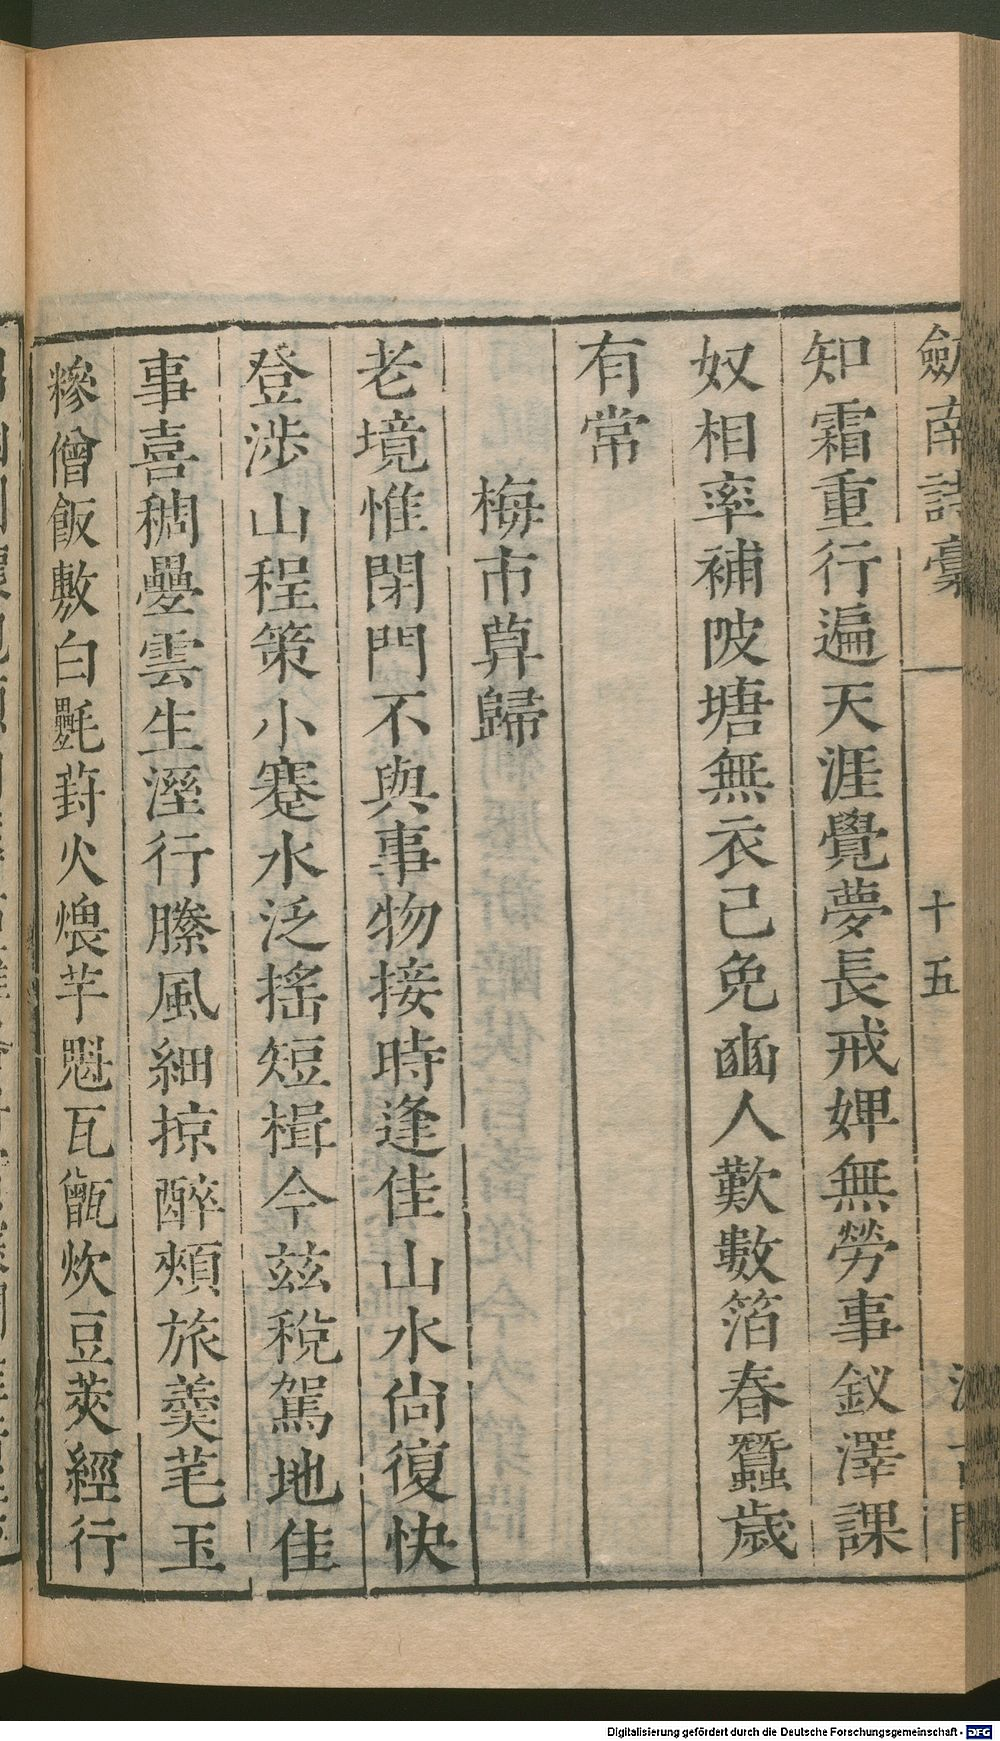 劔南詩稾 十五
知霜重行遍天涯覺夢長戒婢無勞事釵澤課
奴相率補陂塘無衣己免豳人歎數箔春蠶歲
有常
梅市暮歸
老境惟閉門不與事物接時逢佳山水尚復快
登涉山程策小蹇水泛搖短楫今兹稅駕地佳
事喜稠疊雲生溼行縢風細掠醉頰旅羹芼玉
糝僧飯敷白㲲葑火煨芋魁瓦甑炊豆莢經行
Digitalisierung gefördert durch die Deutsche Forschungsgemeinschaft - DFG